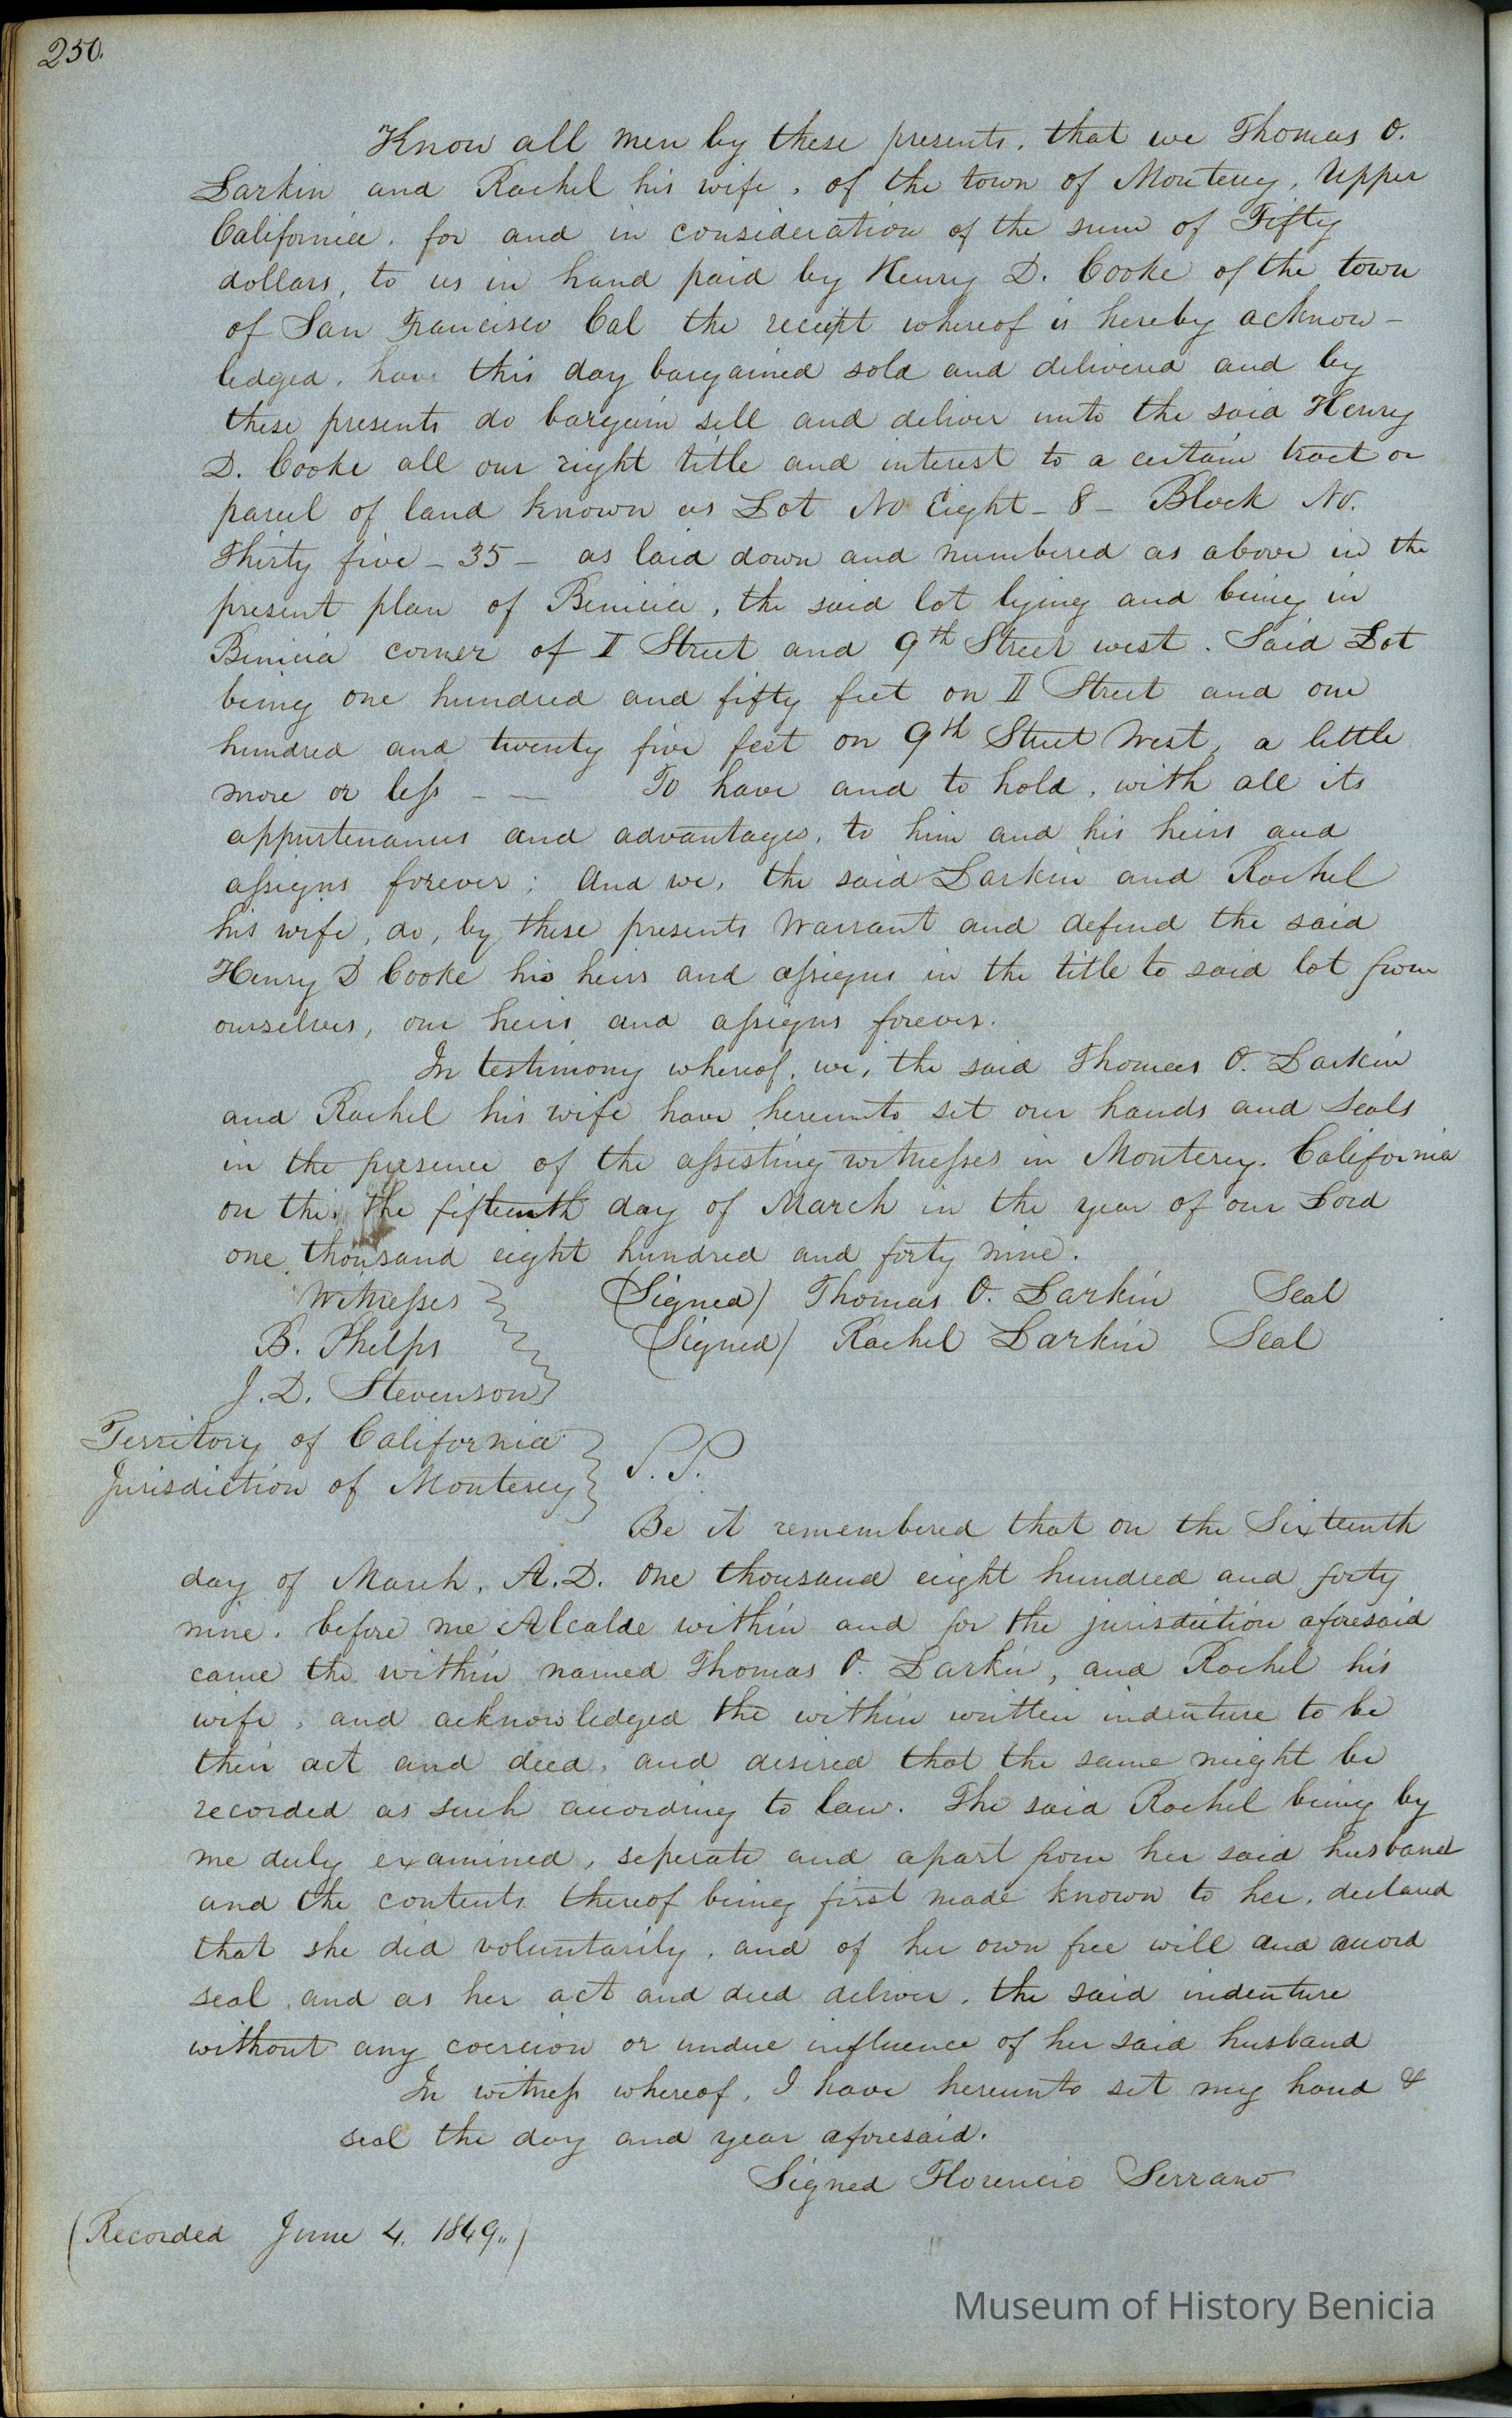 250.
Know all men by these presents, that we Thomas O.
Larkin and Rachel his wife, of the town of Monterey, Upper
California, for and in consideration of the sum of Fifty
dollars, to us in hand paid by Henry D. Cooke of the town
of San Francisco Cal the receipt whereof is hereby acknow-
ledged, have this day bargained sold and delivered and by
these presents do bargain sell and deliver unto the said Henry
D. Cooke all our right title and interest to a certain tract or
parcel of land known as Lot No Eight - 8 - Block No.
Thirty five - 35 - as laid down and numbered as above in the
present plan of Benicia, the said lot lying and being in
Benicia corner of I Street and 9th Street west. Said Lot
being one hundred and fifty feet on I Street and one
hundred and twenty five feet on 9th Street West, a little
more or less - — To have and to hold, with all its
appurtenances and advantages, to him and his heirs and
assigns forever; and we, the said Larkin and Rachel
his wife, do, by these presents Warrant and defend the said
Henry D Cooke his heirs and assigns in the title to said lot from
ourselves, our heirs and assigns forever.
In testimony whereof, we, the said Thomas O. Larkin
and Rachel his wife have hereunto set our hands and Seals
in the presence of the assisting witnesses in Monterey. California
on this the fifteenth day of March in the year of our Lord
one thousand eight hundred and forty nine.
Witnesses (Signed) Thomas O. Larkin Seal
B. Phelps (Signed) Rachel Larkin Seal
J. D. Stevenson
Territory of California
Jurisdiction of Monterey S.S.
Be it remembered that on the Sixteenth
day of March, A.D. one thousand eight hundred and forty
nine, before me Alcalde within and for the jurisdiction aforesaid
came the within named Thomas O. Larkin, and Rachel his
wife, and acknowledged the within written indenture to be
their act and deed, and desired that the same might be
recorded as such according to law. The said Rachel being by
me duly examined, seperate and apart from her said husband
and the contents thereof being first made known to her, declared
that she did voluntarily, and of her own free will and accord
seal, and as her act and deed deliver, the said indenture
without any coercion or undue influence of her said husband
In witness whereof, I have hereunto set my hand &
seal the day and year aforesaid.
Signed Florencio Serrano
(Recorded June 4, 1849.,)
Museum of History Benicia